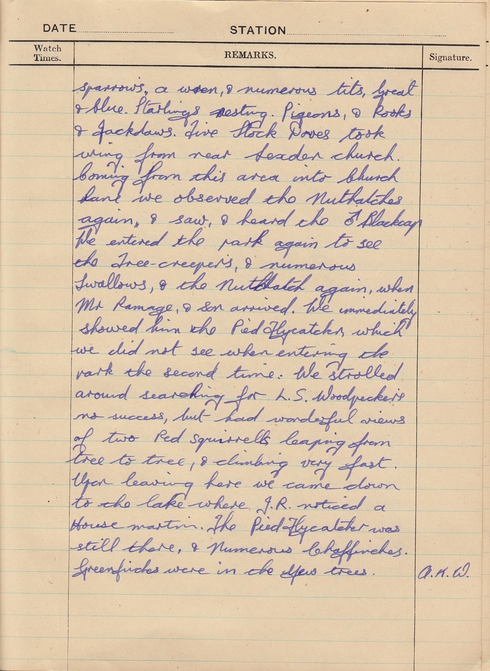 DATE STATION
Watch Times. REMARKS. Signature.
sparrows, a wren, & numerous tits, Great
& blue. Starlings nesting. Pigeons, & Rooks
& Jackdaws. Five Stock Doves took
wing from near church.
Coming from this area into Church
Lane we observed the Nuthatches
again, & saw, & heard the ♂ Blackcap
We entered the park again to see
the Tree-creepers, & numerous
Swallows, & the Nuthatch again, when
Mr Ramage, & son arrived. We immediately
showed him the Pied Flycatcher, which
we did not see when entering the
park the second time. We strolled
around searching for L.S. Woodpeckers
no success, but had wonderful views
of two Red Squirrells leaping from
tree to tree, & climbing very fast.
Upon leaving here we came down
to the lake where J.R. noticed a
House martin. The Pied Flycatcher was
still there, & Numerous Chaffinches.
Greenfinches were in the Yew trees. A.K.W.